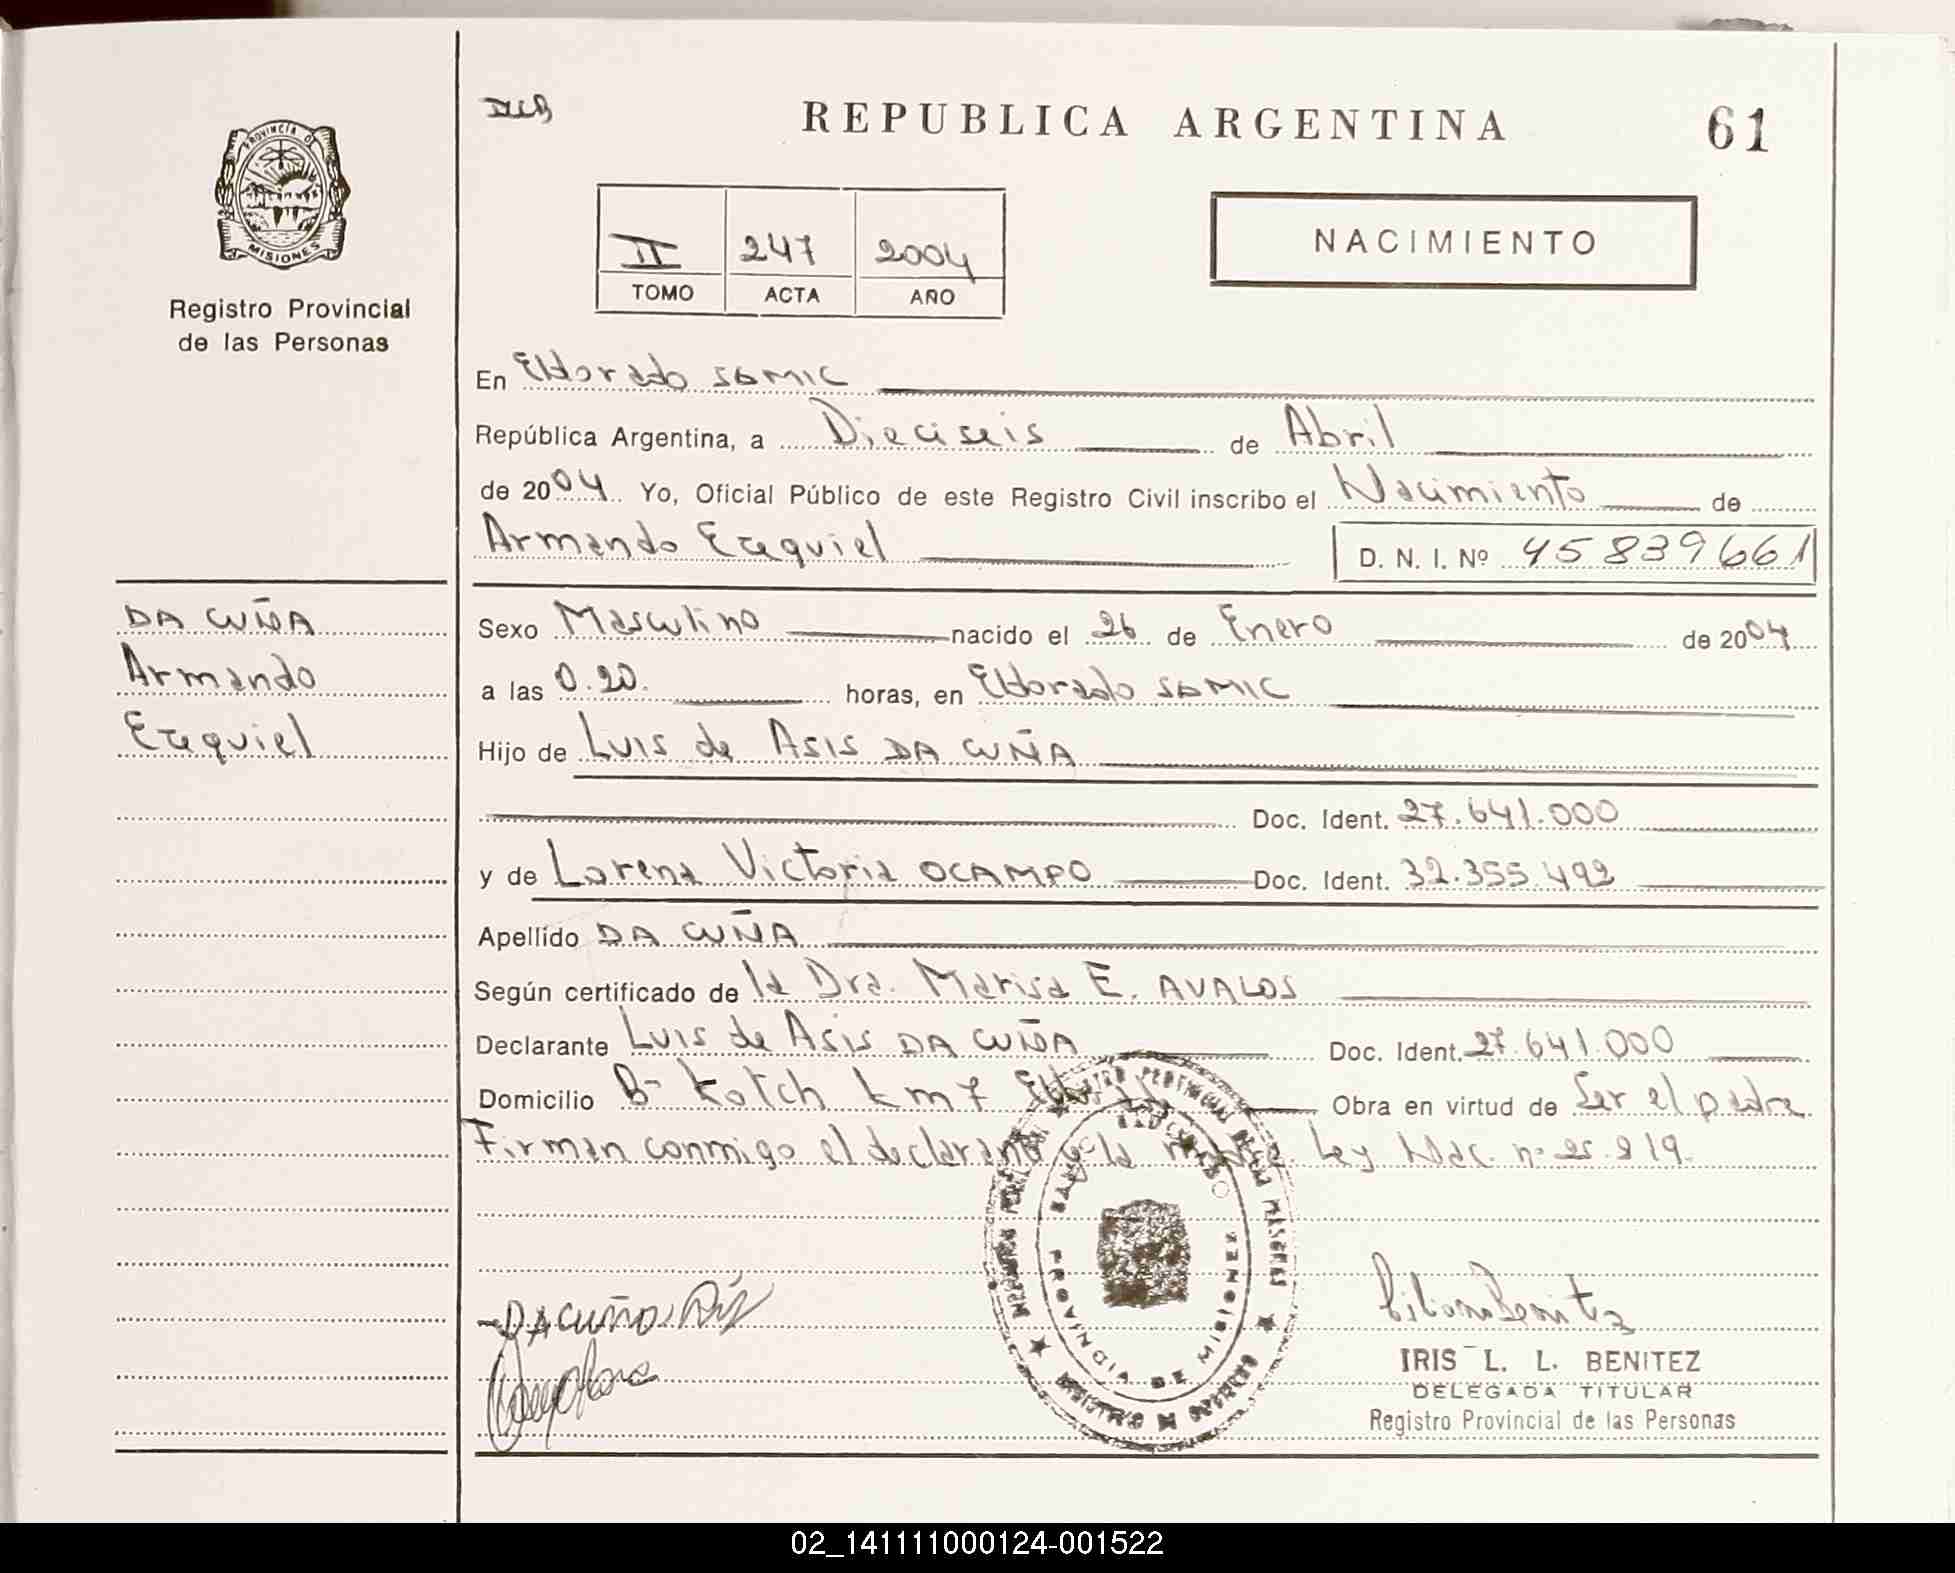 REPUBLICA ARGENTINA
61
PROVINCIA DE
MISIONES
Registro Provincial
de las Personas
II 247 2004
TOMO ACTA AÑO
NACIMIENTO
En Eldorado SAMIC
República Argentina, a Dieciseis de Abril
de 2004 Yo, Oficial Público de este Registro Civil inscribo el Nacimiento de
Armando Ezequiel D. N. I. Nº 45839661
DA CUÑA
Armando
Ezequiel
Sexo Masculino nacido el 26 de Enero de 2004
a las 0.20. horas, en Eldorado SAMIC
Hijo de Luis de Asis DA CUÑA
Doc. Ident. 27.641.000
y de Lorena Victoria OCAMPO Doc. Ident. 32.355.492
Apellido DA CUÑA
Según certificado de la Dra. Marisa E. AVALOS
Declarante Luis de Asis DA CUÑA Doc. Ident. 27.641.000
Domicilio B- Kotch Km 7 Eldorado Obra en virtud de Ser el padre
Firman conmigo el declarante y la madre. Ley Nac. nº 25.819.
PROVINCIA DE MISIONES
DA CUÑA Luis
IRIS L. L. BENITEZ
DELEGADA TITULAR
Registro Provincial de las Personas
02_141111000124-001522